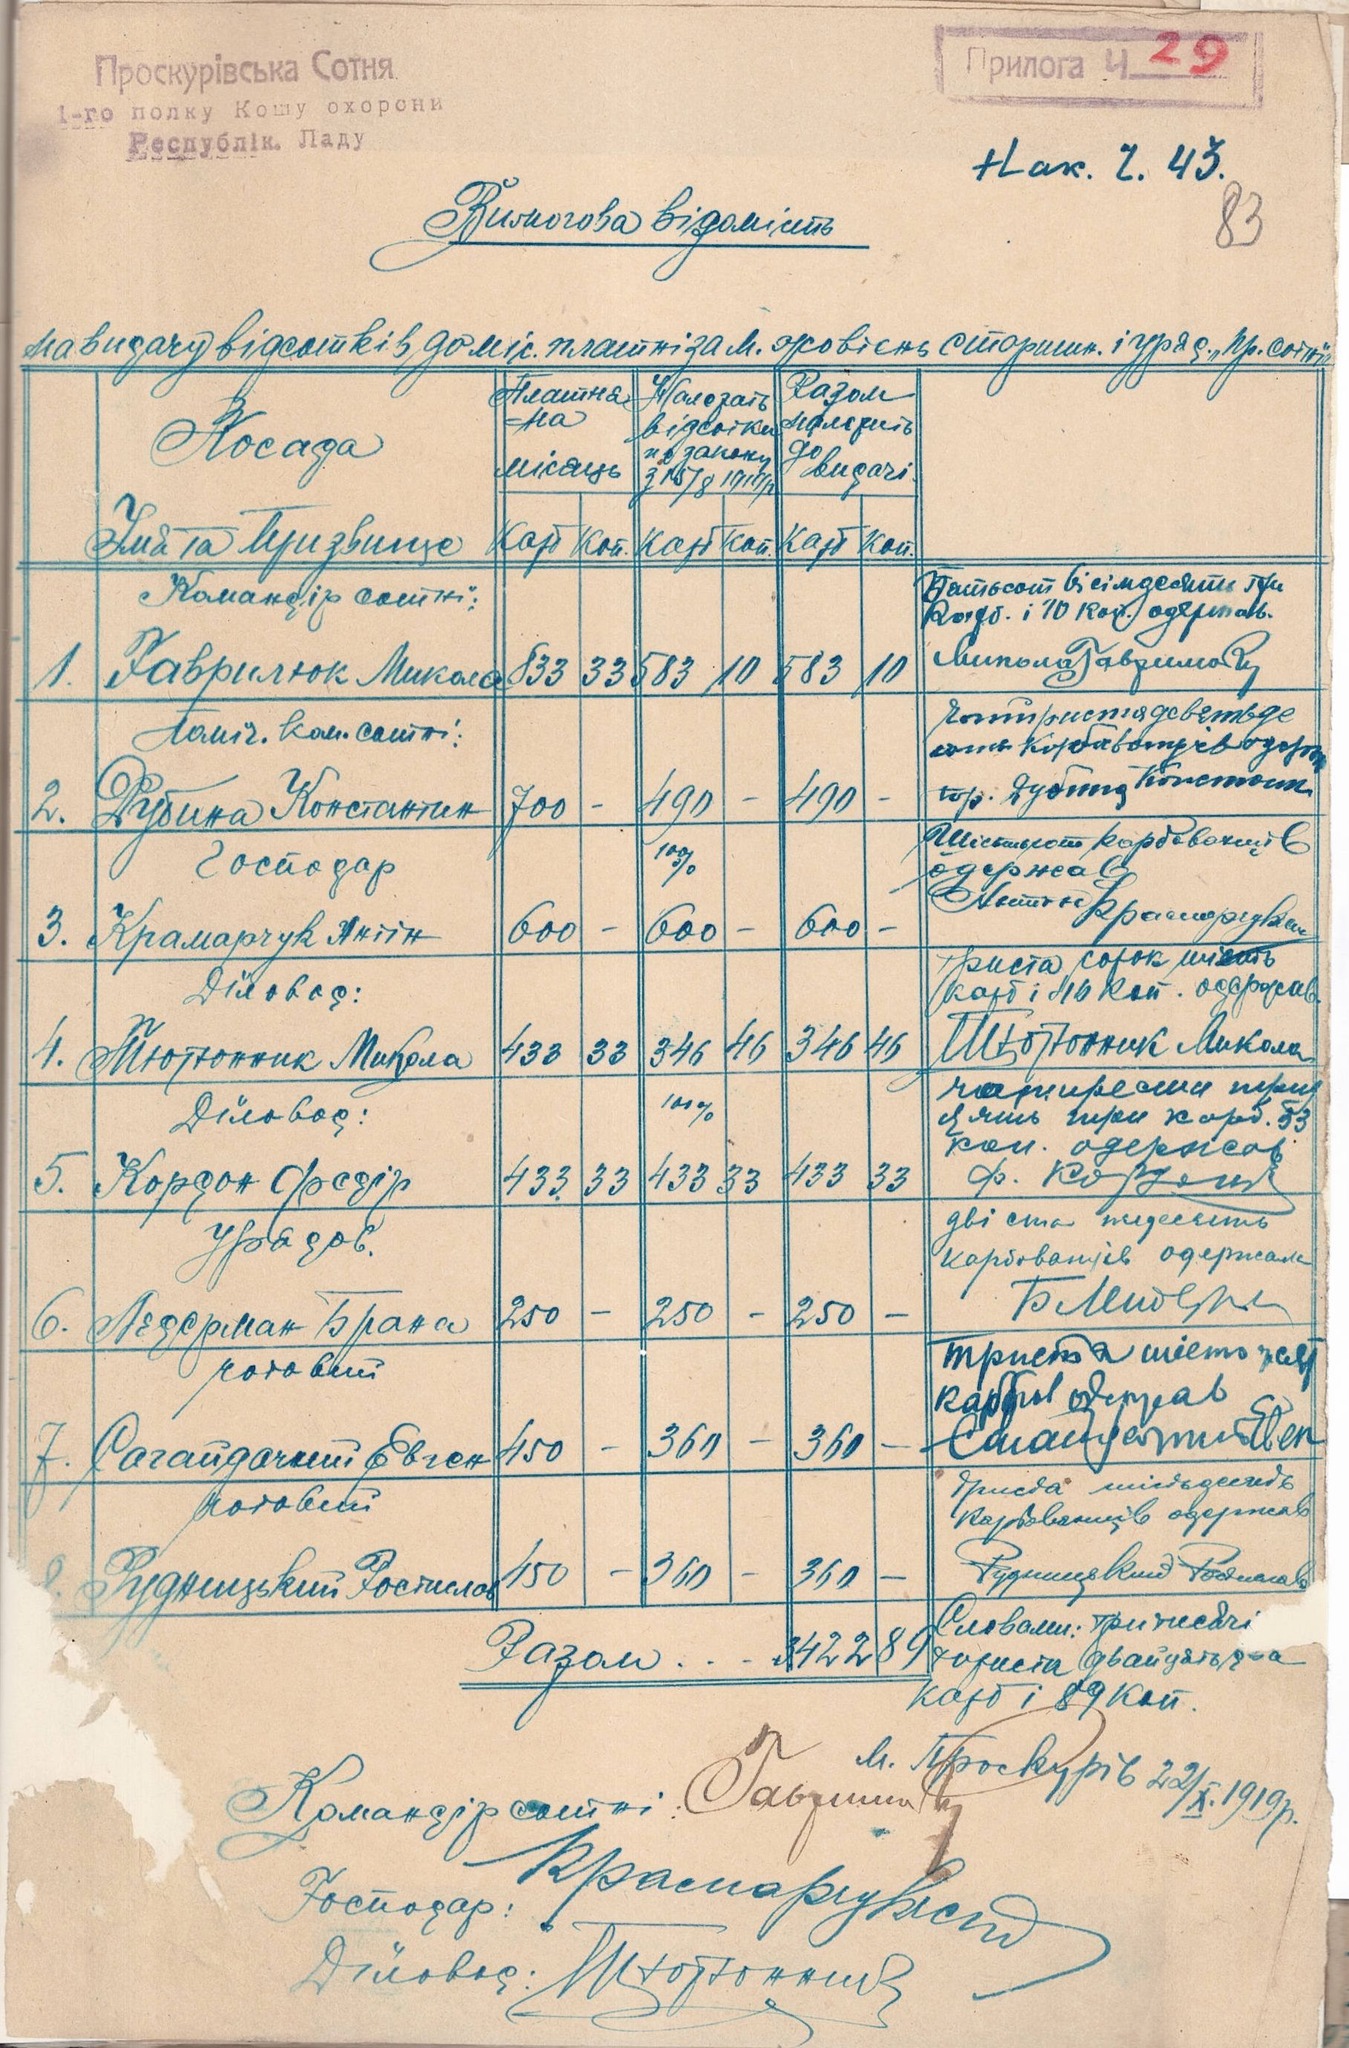 Проскурівська Сотня
1-го полку Кошу охорони
Республік. Ладу
Прилога Ч. 29
Нак. ч. 43.
83
Вимогова відомість
на видачу відсотків до міс. платні за м. жовтень старшин. і уряд. „Пр. сотні"
Посада
Ймя та Призвище
Платня на місяць
Належать відсотки по закону з 15/8 1919 р
Разом належить до видачі
Карб Коп. Карб Коп. Карб Коп.
Командір сотні:
Пятьсот вісімдесять три
Карб. і 10 коп. одержав.
1. Гаврилюк Микола 833 33 583 10 583 10 Микола Гаврилюк
Поміч. Ком. сотні:
Чотириста девятьде
сять Карбованців одерж
2. Дубина Константин 700 - 490 - 490 - Дубина Констант
Господар 100%
Шістьсот карбованців
одержав
3. Крамарчук Антін 600 - 600 - 600 - Антін Крамарчук
Діловод:
триста сорок шість
карб і 46 коп. одержав.
4. Тютюнник Микола 433 33 346 46 346 46 Тютюнник Микола
Діловод: 100%
чотиреста трид
цять три карб. 33
коп. одержав
5. Кордон Федір 433 33 433 33 433 33 Ф. Кордон
Урядов.
двіста пядесять
карбованців одержала
6. Лєдєрман Брана 250 - 250 - 250 -
чотовий
триста шістьдесят
карбов одержав
7. Сагайдачний Евген 450 - 360 - 360 -
чотовий
триста шістьдесять
карбованців одержав
8. Рудницький Ростислав 450 - 360 - 360 - Рудницький Ростислав
Разом . . . 3422 89
Словами: три тисячі
чотириста двайцять два
карб і 89 коп.
м. Проскурів 22/X. 1919 р.
Командір сотні: Гаврилюк
Господар: Крамарчук
Діловод: Тютюнник